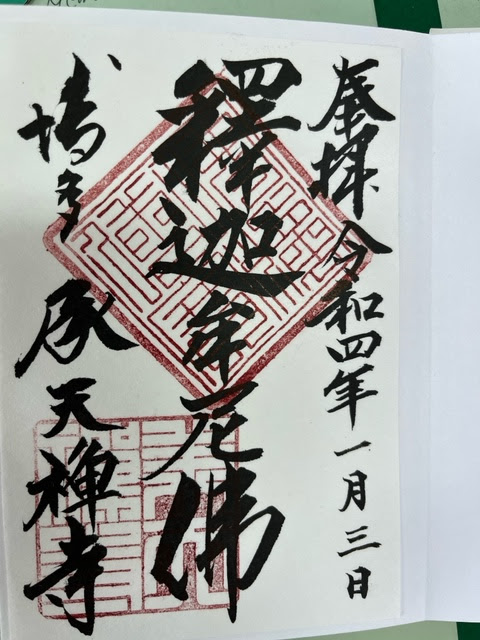 奉拝 令和四年一月三日
釋迦牟尼佛
博多 承天禅寺